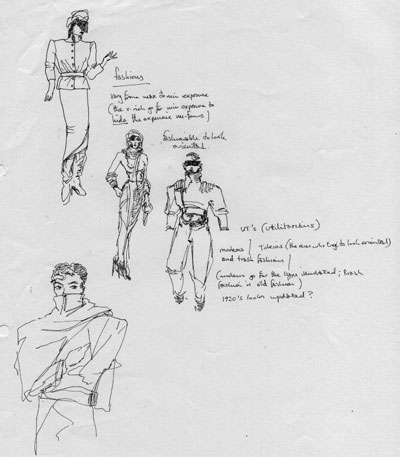 fashions
vary from max to min exposure
(the v. rich go for min exposure to
hide the expensive
fashionable to look
oriental
UT's (utilitarians)
moderns / (the ones who try to look oriental)
and trash fashions /
(moderns go for the ; trash
fashion is old fashion)
1920's looks updated?